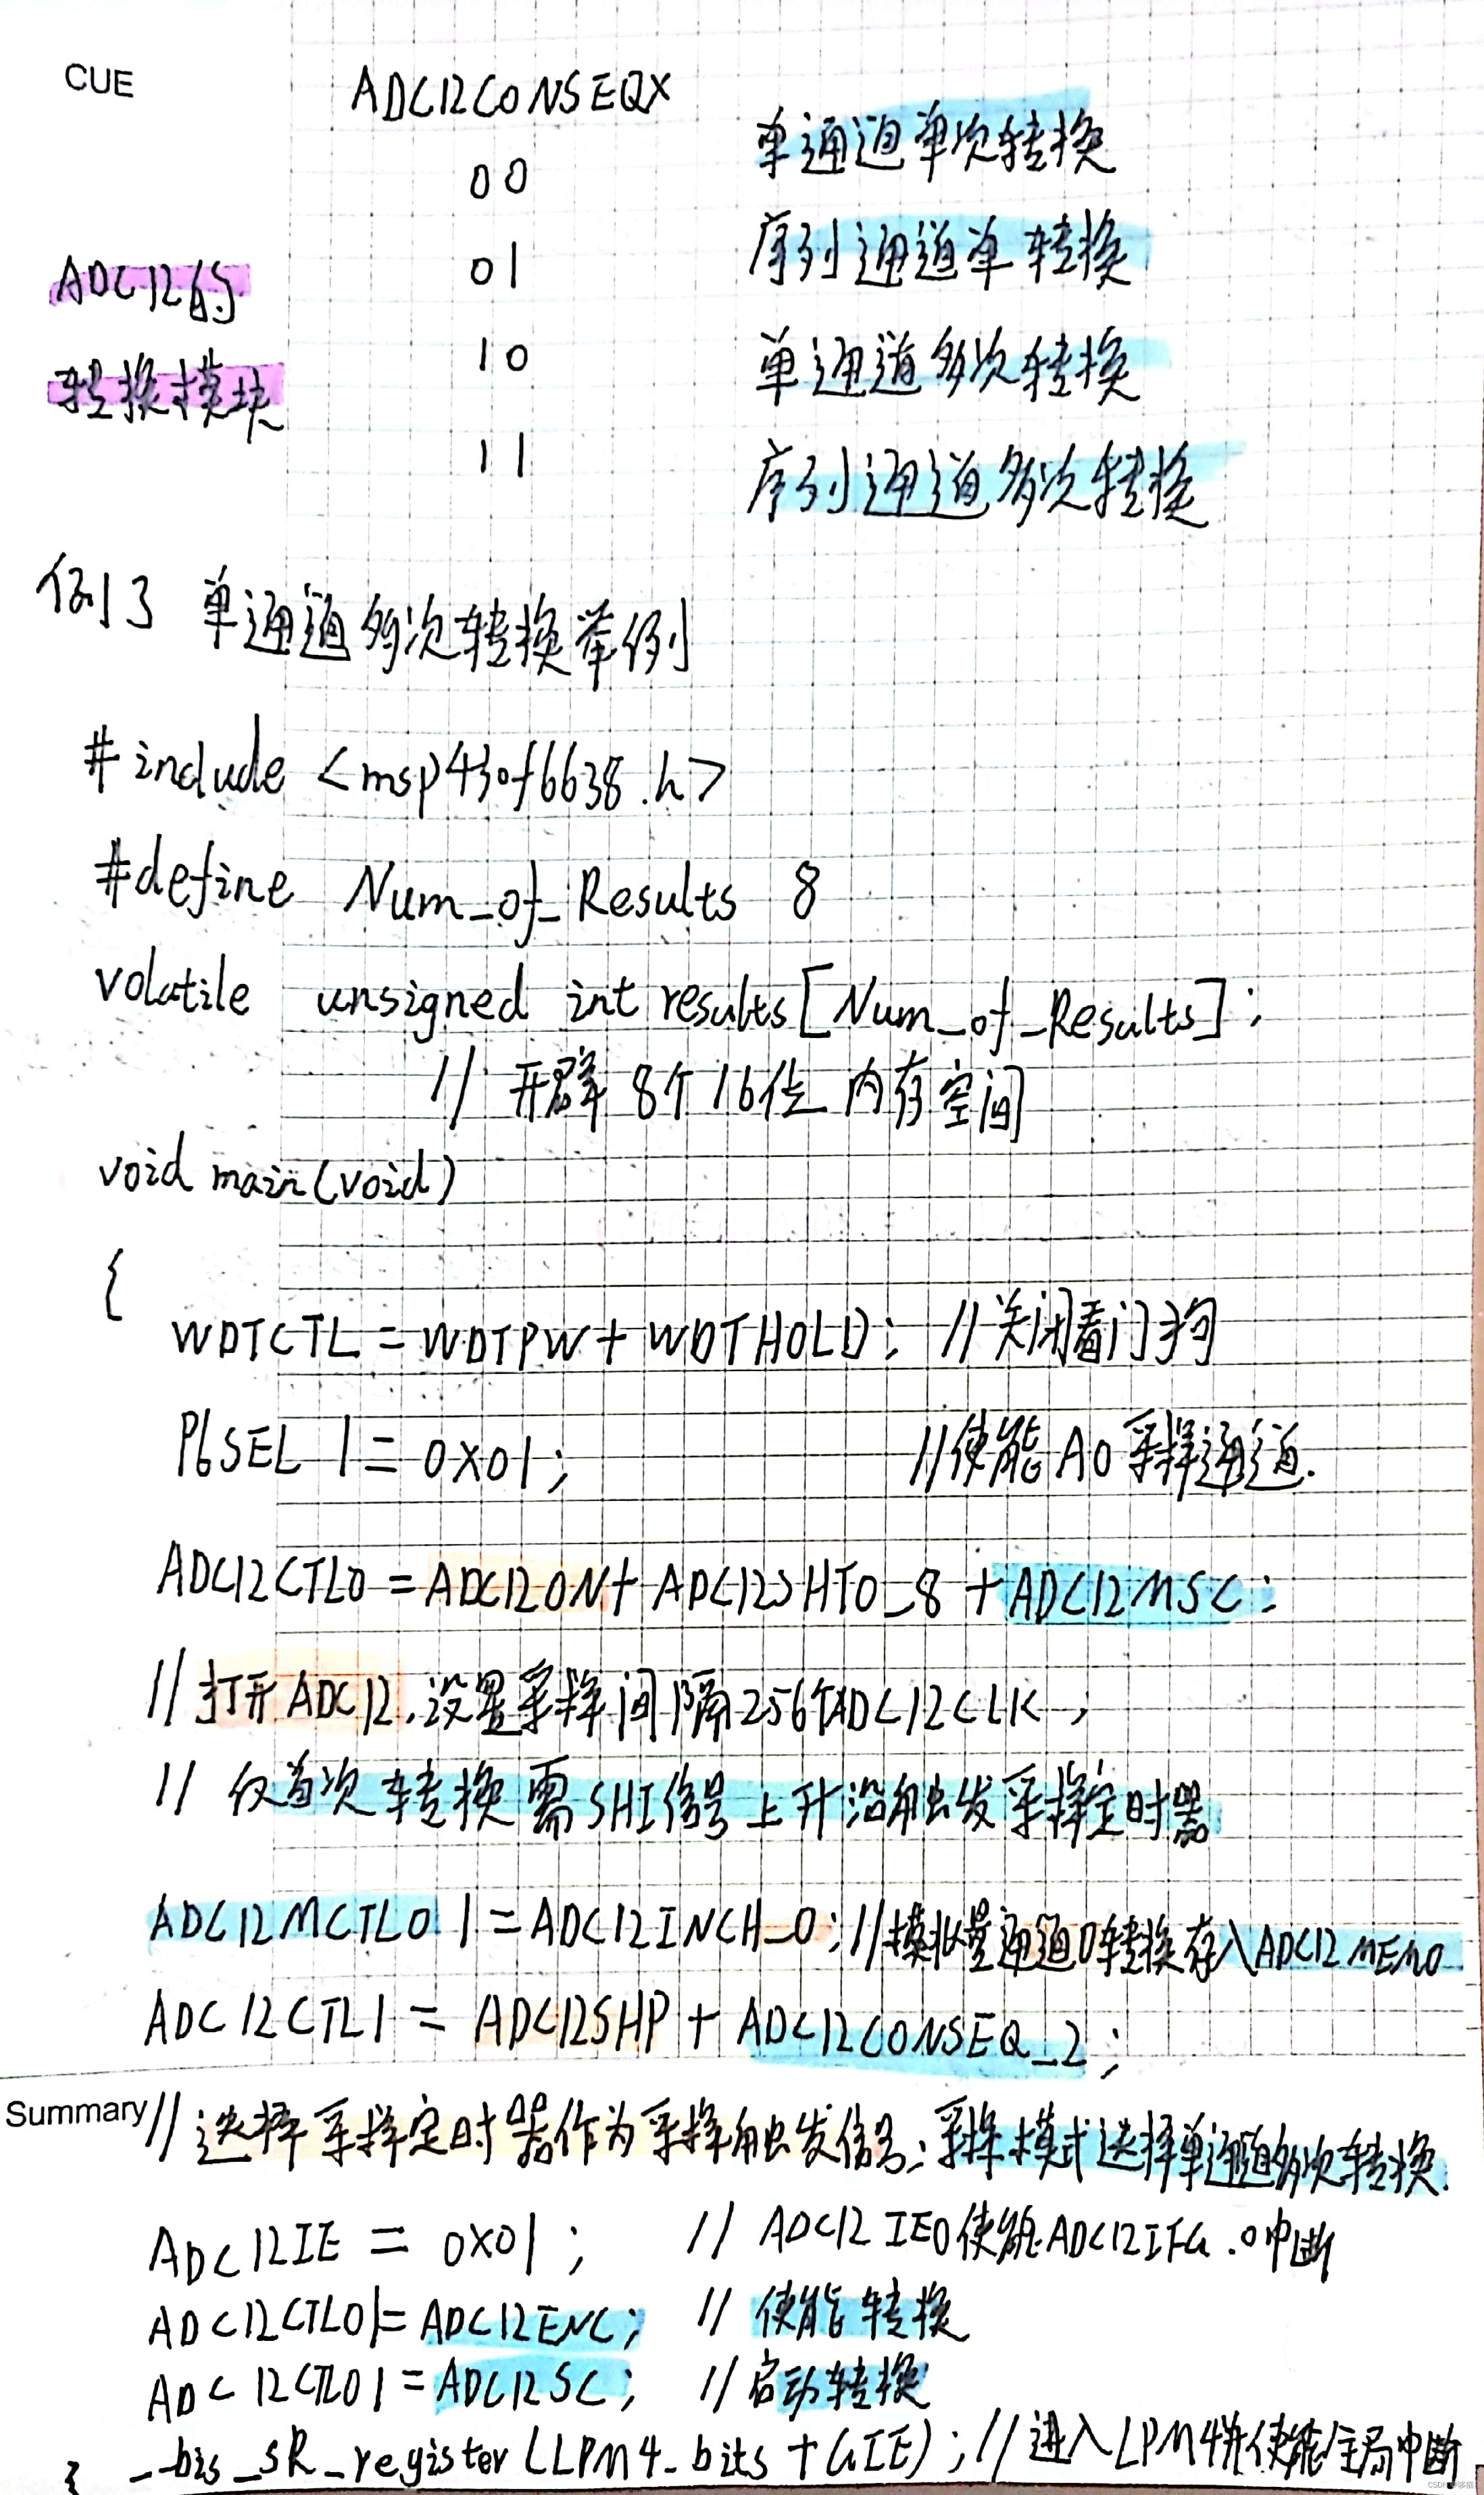 CUE
ADC12CONSEQX
00 单通道单次转换
01 序列通道单转换
ADC12的
转换模块
10 单通道多次转换
11 序列通道多次转换
例3 单通道多次转换举例
#include <msp430f6638.h>
#define Num_of_Results 8
volatile unsigned int results[Num_of_Results];
// 开辟 8个16位 内存空间
void main(void)
{
WDTCTL = WDTPW + WDTHOLD; //关闭看门狗
P6SEL |= 0X01; //使能A0采样通道.
ADC12CTL0 = ADC12ON + ADC12SHT0_8 + ADC12MSC;
// 打开ADC12,设置采样间隔256个ADC12CLK,
// 仅首次转换需SHI信号上升沿触发采样定时器
ADC12MCTL0 |= ADC12INCH_0; //模拟量通道0转换存入ADC12MEM0
ADC12CTL1 = ADC12SHP + ADC12CONSEQ_2;
Summary // 选择采样定时器作为采样触发信号;采样模式选择单通道多次转换.
ADC12IE = 0X01; // ADC12IE0使能ADC12IFG.0中断
ADC12CTL0 |= ADC12ENC; // 使能转换
ADC12CTL0 |= ADC12SC; // 启动转换
__bis_SR_register(LPM4_bits + GIE); // 进入LPM4并使能全局中断
}